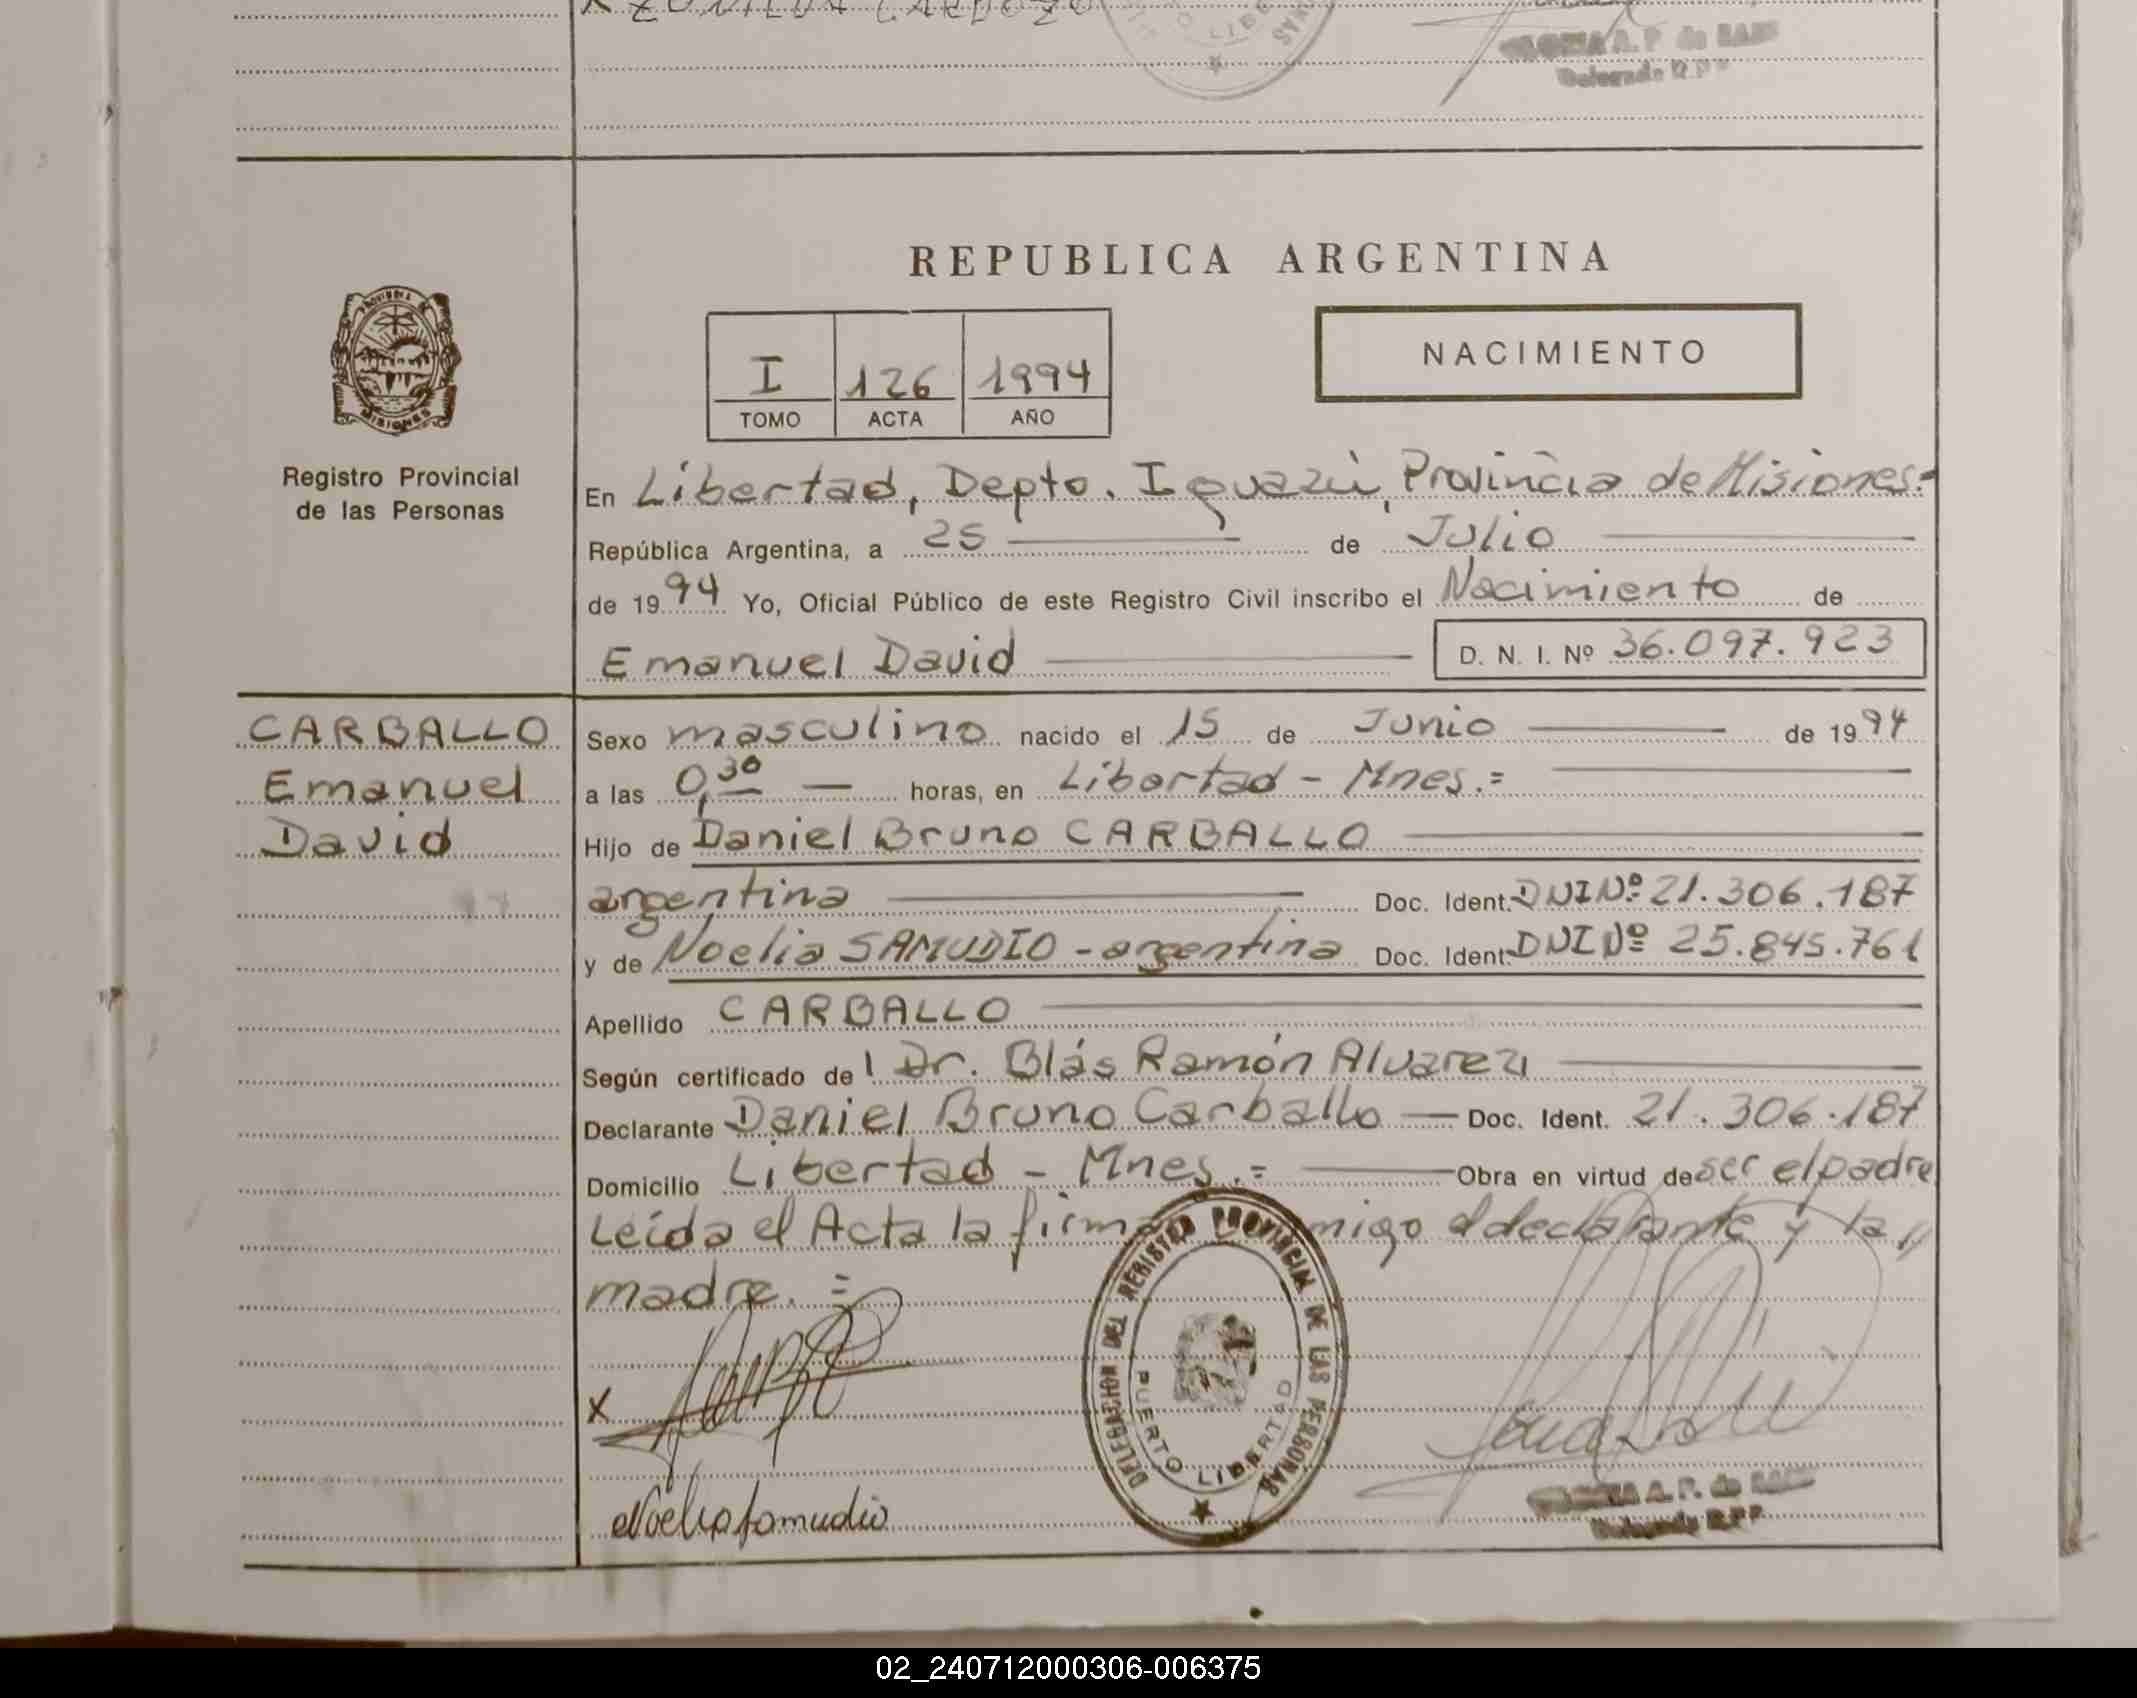 REPUBLICA ARGENTINA
I 126 1994
TOMO ACTA AÑO
NACIMIENTO
PROVINCIA DE
MISIONES
Registro Provincial
de las Personas
En Libertad, Depto. Iguazú, Provincia de Misiones.=
República Argentina, a 25 de Julio
de 1994 Yo, Oficial Público de este Registro Civil inscribo el Nacimiento de
Emanuel David D. N. I. Nº 36.097.923
CARBALLO
Emanuel
David
Sexo masculino nacido el 15 de Junio de 1994
a las 0,30 horas, en Libertad - Mnes.=
Hijo de Daniel Bruno CARBALLO
argentina Doc. Ident. DNI Nº 21.306.187
y de Noelia SAMUDIO - argentina Doc. Ident DNI Nº 25.845.761
Apellido CARBALLO
Según certificado del Dr. Blás Ramón Alvarez
Declarante Daniel Bruno Carballo Doc. Ident. 21.306.187
Domicilio Libertad - Mnes.= Obra en virtud de ser el padre
Leída el Acta la firma migo el declarante y la
madre. =
X
DELEGACION DEL REGISTRO PROVINCIAL DE LAS PERSONAS
PUERTO LIBERTAD
Noelia Samudio
A. P. de
02_240712000306-006375